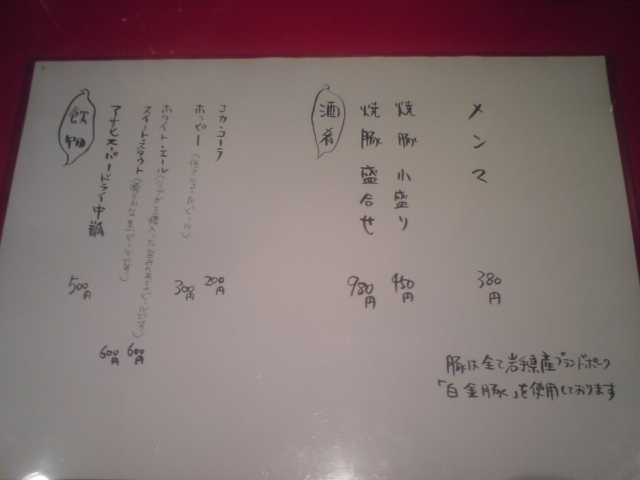 飲物
アサヒスーパードライ中瓶 500円
スイートスタウト 600円
ホワイト・エール 600円
ホッピー 300円
コカ・コーラ 200円
酒肴
焼豚盛合せ 980円
焼豚小盛り 450円
メンマ 380円
豚は全て岩手県産ブランドポーク
「白金豚」を使用しております